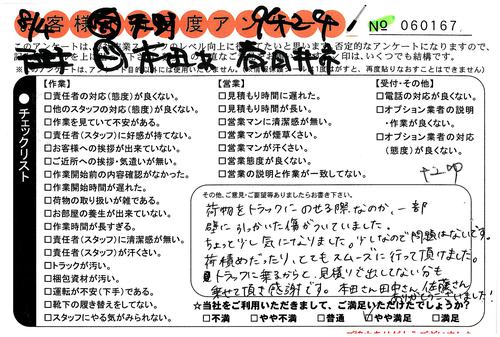 お客様満足度アンケート
No 060167
このアンケートは、
否定的なアンケートになりますので、
印は、いくつでも結構です。
※このアンケートは、
再度貼りなおすことはできません。
チェックリスト
【作業】
□責任者の対応(態度)が良くない。
□他のスタッフの対応(態度)が良くない。
□作業を見ていて不安がある。
□責任者(スタッフ)に好感が持てない。
□お客様への挨拶が出来ていない。
□ご近所への挨拶・気遣いが無い。
□作業開始前の内容確認がなかった。
□作業開始時間が遅れた。
□荷物の取り扱いが雑である。
□お部屋の養生が出来ていない。
□作業時間が長すぎる。
□責任者(スタッフ)に清潔感が無い。
□責任者(スタッフ)が汗くさい。
□トラックが汚い。
□梱包資材が汚い。
□運転が不安(下手)である。
□靴下の履き替えをしてない。
□スタッフにやる気がみられない。
【営業】
□見積もり時間に遅れた。
□見積もり時間が長い。
□営業マンに清潔感が無い。
□営業マンが煙草くさい。
□営業マンが汗くさい。
□営業態度が良くない。
□営業の説明と作業が一致してない。
【受付・その他】
□電話の対応が良くない。
□オプション業者の説明
・作業が良くない。
□オプション業者の対応
(態度)が良くない。
その他、ご意見・ご要望等ありましたらお書き下さい。
荷物をトラックにのせる際なのか、一部
壁に引っかいた傷がついていました。
ちょっと少し気になりました。少しなので問題はないです。
荷積めだったり、とてもスムーズに行って頂けました。
トラックに乗るからと、見積りで出してない分も
乗せて頂き感謝です。本田さん田中さん、佐藤さん
ありがとうございました!
☆当社をご利用いただきまして、ご満足いただけたでしょうか?
□不満 □やや不満 □普通 ☑やや満足 □満足